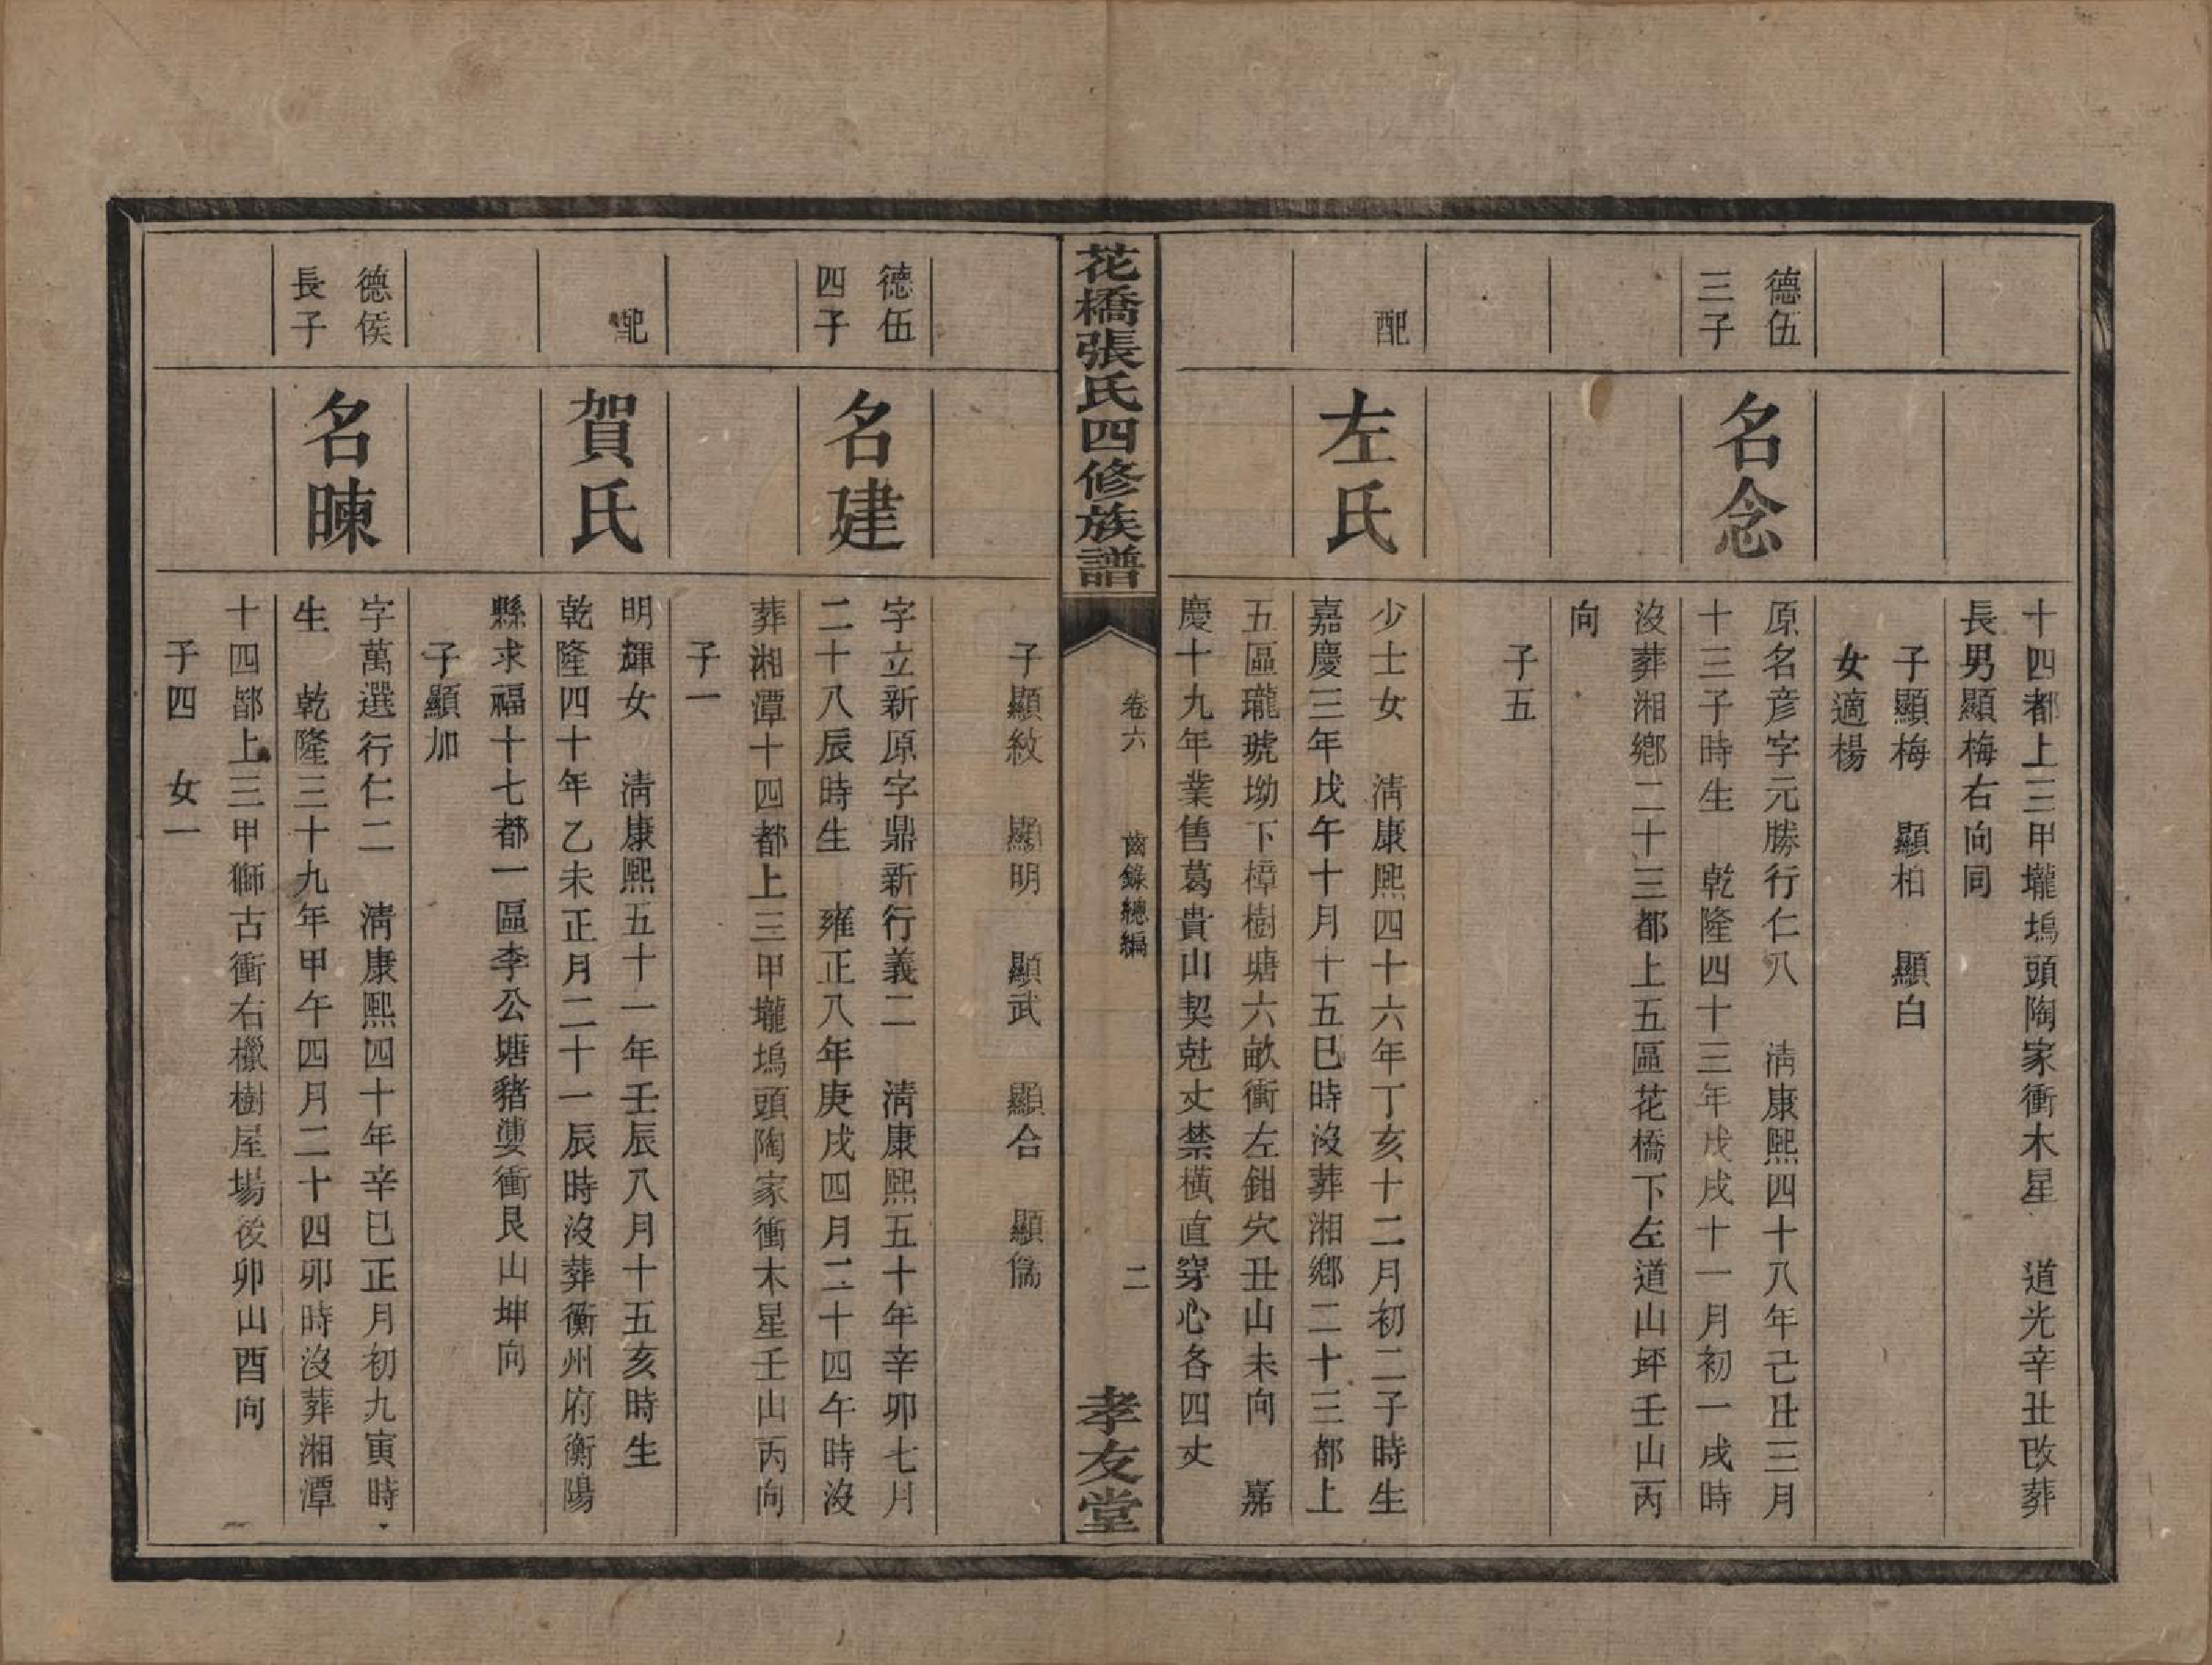 十四都上三甲壠塢頭陶家衝木星　道光辛丑改葬
長男顯梅右向同
子顯梅　顯柏　顯白
女適楊
德伍
三子
名念
原名彦字元勝行仁八　清康熙四十八年己丑三月
十三子時生　乾隆四十三年戊戌十一月初一戌時
沒葬湘鄉二十三都上五區花橋下左道山坪壬山丙
向
子五
配
左氏
少士女　清康熙四十六年丁亥十二月初二子時生
嘉慶三年戊午十月十五巳時沒葬湘鄉二十三都上
五區瓏琥坳下樟樹塘六畝衝左鉗穴丑山未向　嘉
慶十九年業售葛貴山契尅丈禁橫直穿心各四丈
花橋張氏四修族譜
卷六
齒錄總編
二
孝友堂
子顯紋　顯明　顯武　顯合　顯儒
德伍
四子
名建
字立新原字鼎新行義二　清康熙五十年辛卯七月
二十八辰時生　雍正八年庚戌四月二十四午時沒
葬湘潭十四都上三甲壠塢頭陶家衝木星壬山丙向
子一
配
賀氏
明輝女　清康熙五十一年壬辰八月十五亥時生
乾隆四十年乙未正月二十一辰時沒葬衡州府衡陽
縣求福十七都一區李公塘豬婆衝艮山坤向
子顯加
德侯
長子
名暕
字萬選行仁二　清康熙四十年辛巳正月初九寅時
生　乾隆三十九年甲午四月二十四卯時沒葬湘潭
十四都上三甲獅古衝右櫟樹屋場後卯山酉向
子四　女一